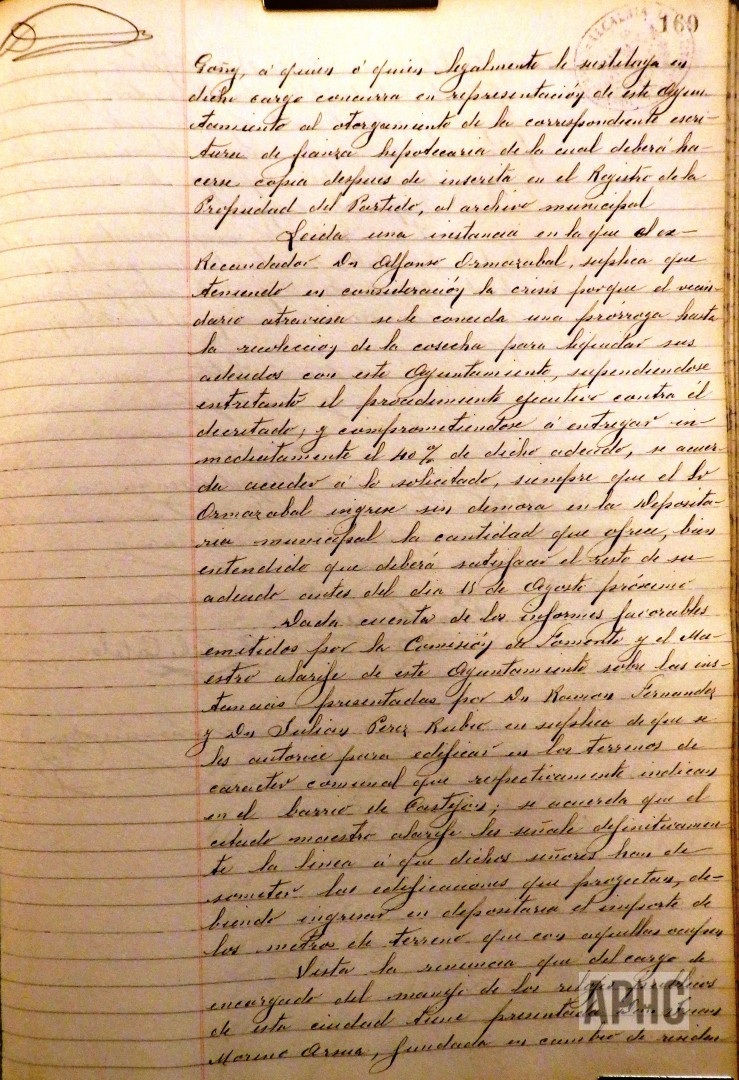 169
ALCALDIA
Goñy, á quien ó quien legalmente le sustituya en
dicho cargo concurra en representación de este Ayun-
tamiento al otorgamiento de la correspondiente escri-
tura de fianza hipotecaria de la cual deberá ha-
cerse copia despues de inscrita en el Registro de la
Propiedad del Partido, al archivo municipal
Leida una instancia en la que el ex-
Recaudador Dn Alfonso Ormazabal, suplica que
teniendo en consideración la crisis porque el vecin-
dario atraviesa se le conceda una prórroga hasta
la recolección de la cosecha para liquidar sus
adeudos con este Ayuntamiento, supendiendose
entretanto el procedimiento ejecutivo contra él
decretado; y comprometiendose á entregar in-
mediatamente el 40% de dicho adeudo, se acuer-
da acceder á lo solicitado, siempre que el Sr
Ormazabal ingrese sin demora en la Deposita-
ria municipal la cantidad que ofrece, bien
entendido que deberá satisfacer el resto de su
adeudo antes del dia 15 de Agosto próximo
Dada cuenta de los informes favorables
emitidos por la Comisión de Fomento y el Ma-
estro alarife de este Ayuntamiento sobre las ins-
tancias presentadas por Dn Ramon Fernandez
y Dn Julian Perez Rubio en suplica de que se
les autorice para edificar en los terrenos de
caracter comunal que respectivamente indican
en el barrio de Castejon; se acuerda que el
citado maestro alarife les señale definitivamen-
te la linea á que dichos señores han de
someter las edificaciones que proyectan, de-
biendo ingresar en depositaria el importe de
los metros de terreno que con aquellas ocupen
Vista la renuncia que del cargo de
encargado del manejo de los relojes públicos
de esta ciudad tiene presentada
Moreno Arnur, fundada en cambio de residen-
APHC